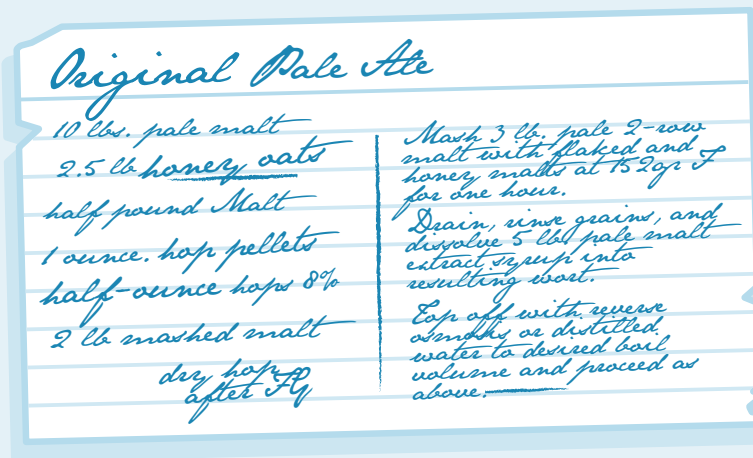 Original Pale Ale
10 lbs. pale malt
2.5 lb honey oats
half pound Malt
1 ounce. hop pellets
half-ounce hops 8%
2 lb mashed malt
dry hop
after
Mash 3 lb. pale 2-row
malt with flaked and
honey malts at 152gr F
for one hour.
Drain, rinse grains, and
dissolve 5 lb. pale malt
extract syrup into
resulting wort.
Top off with reverse
osmosis or distilled
water to desired boil
volume and proceed as
above.